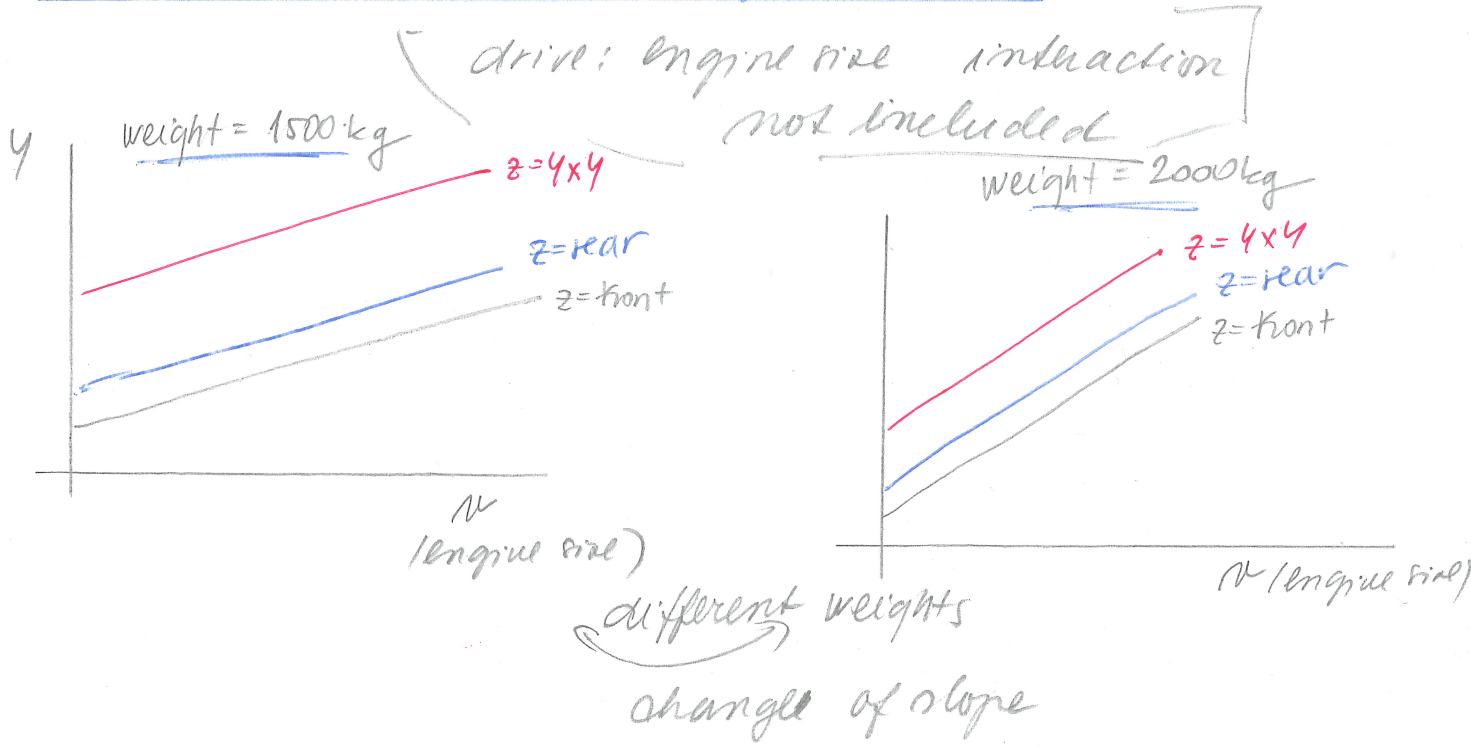 drive: engine size interaction
not included
y
weight = 1500 kg
z=4x4
z=rear
z=front
v
(engine size)
weight = 2000kg
z=4x4
z=rear
z=front
v (engine size)
different weights
change of slope